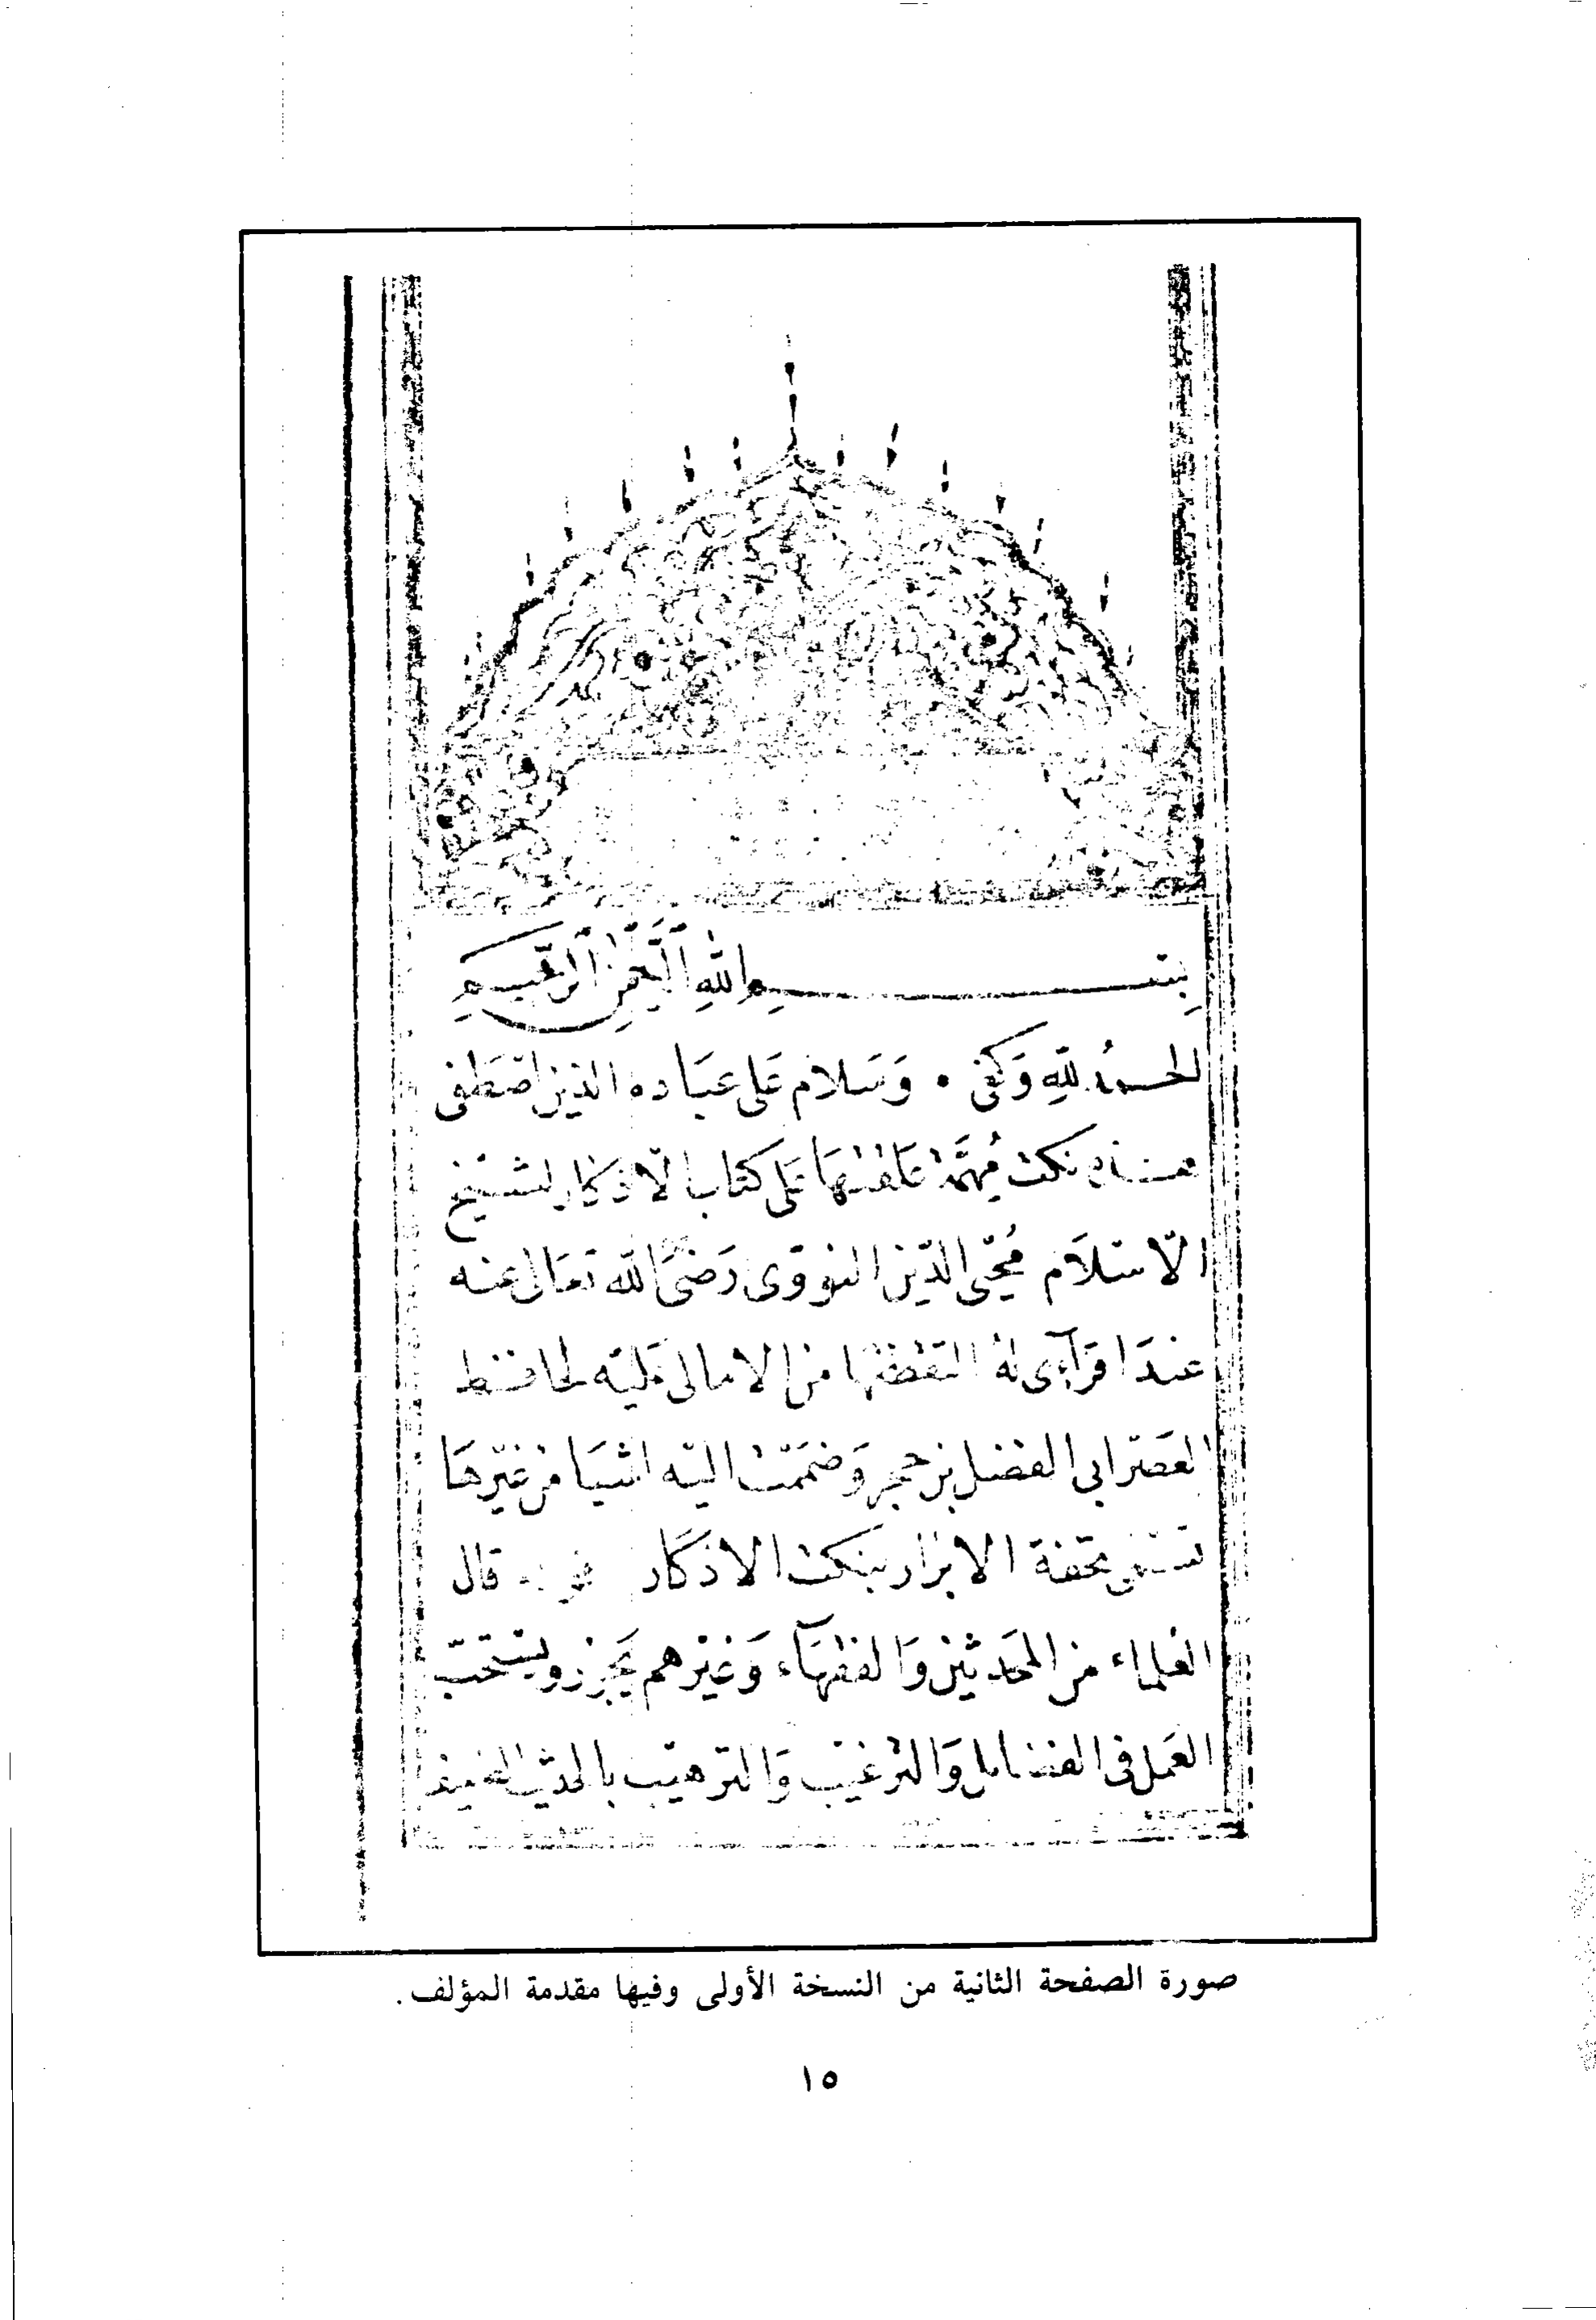 بسم الله الرحمن الرحيم
الحمد لله وكفى . وسلام على عباده الذين اصطفى
هذه نكت مهمة علقتها على كتاب الاذكار لشيخ
الاسلام محيى الدين النووى رضى الله تعالى عنه
عند اقراءى له التقطتها من الامالى عليه لحافظ
العصر ابى الفضل بن حجر وضممت اليه اشيا من غيرها
تسمى بتحفة الابرار بنكت الاذكار قال
العلماء من المحدثين والفقهآء وغيرهم يجوز ويستحب
العمل فى الفضايل والترغيب والترهيب بالحديث الضعيف
صورة الصفحة الثانية من النسخة الأولى وفيها مقدمة المؤلف.
١٥